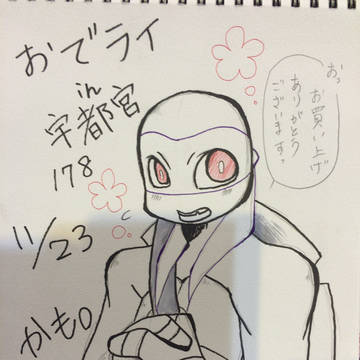 おでライ
in
宇都宮
178
11/23
かも。
おっ
お買い上げ
ありがとう
ございますっ